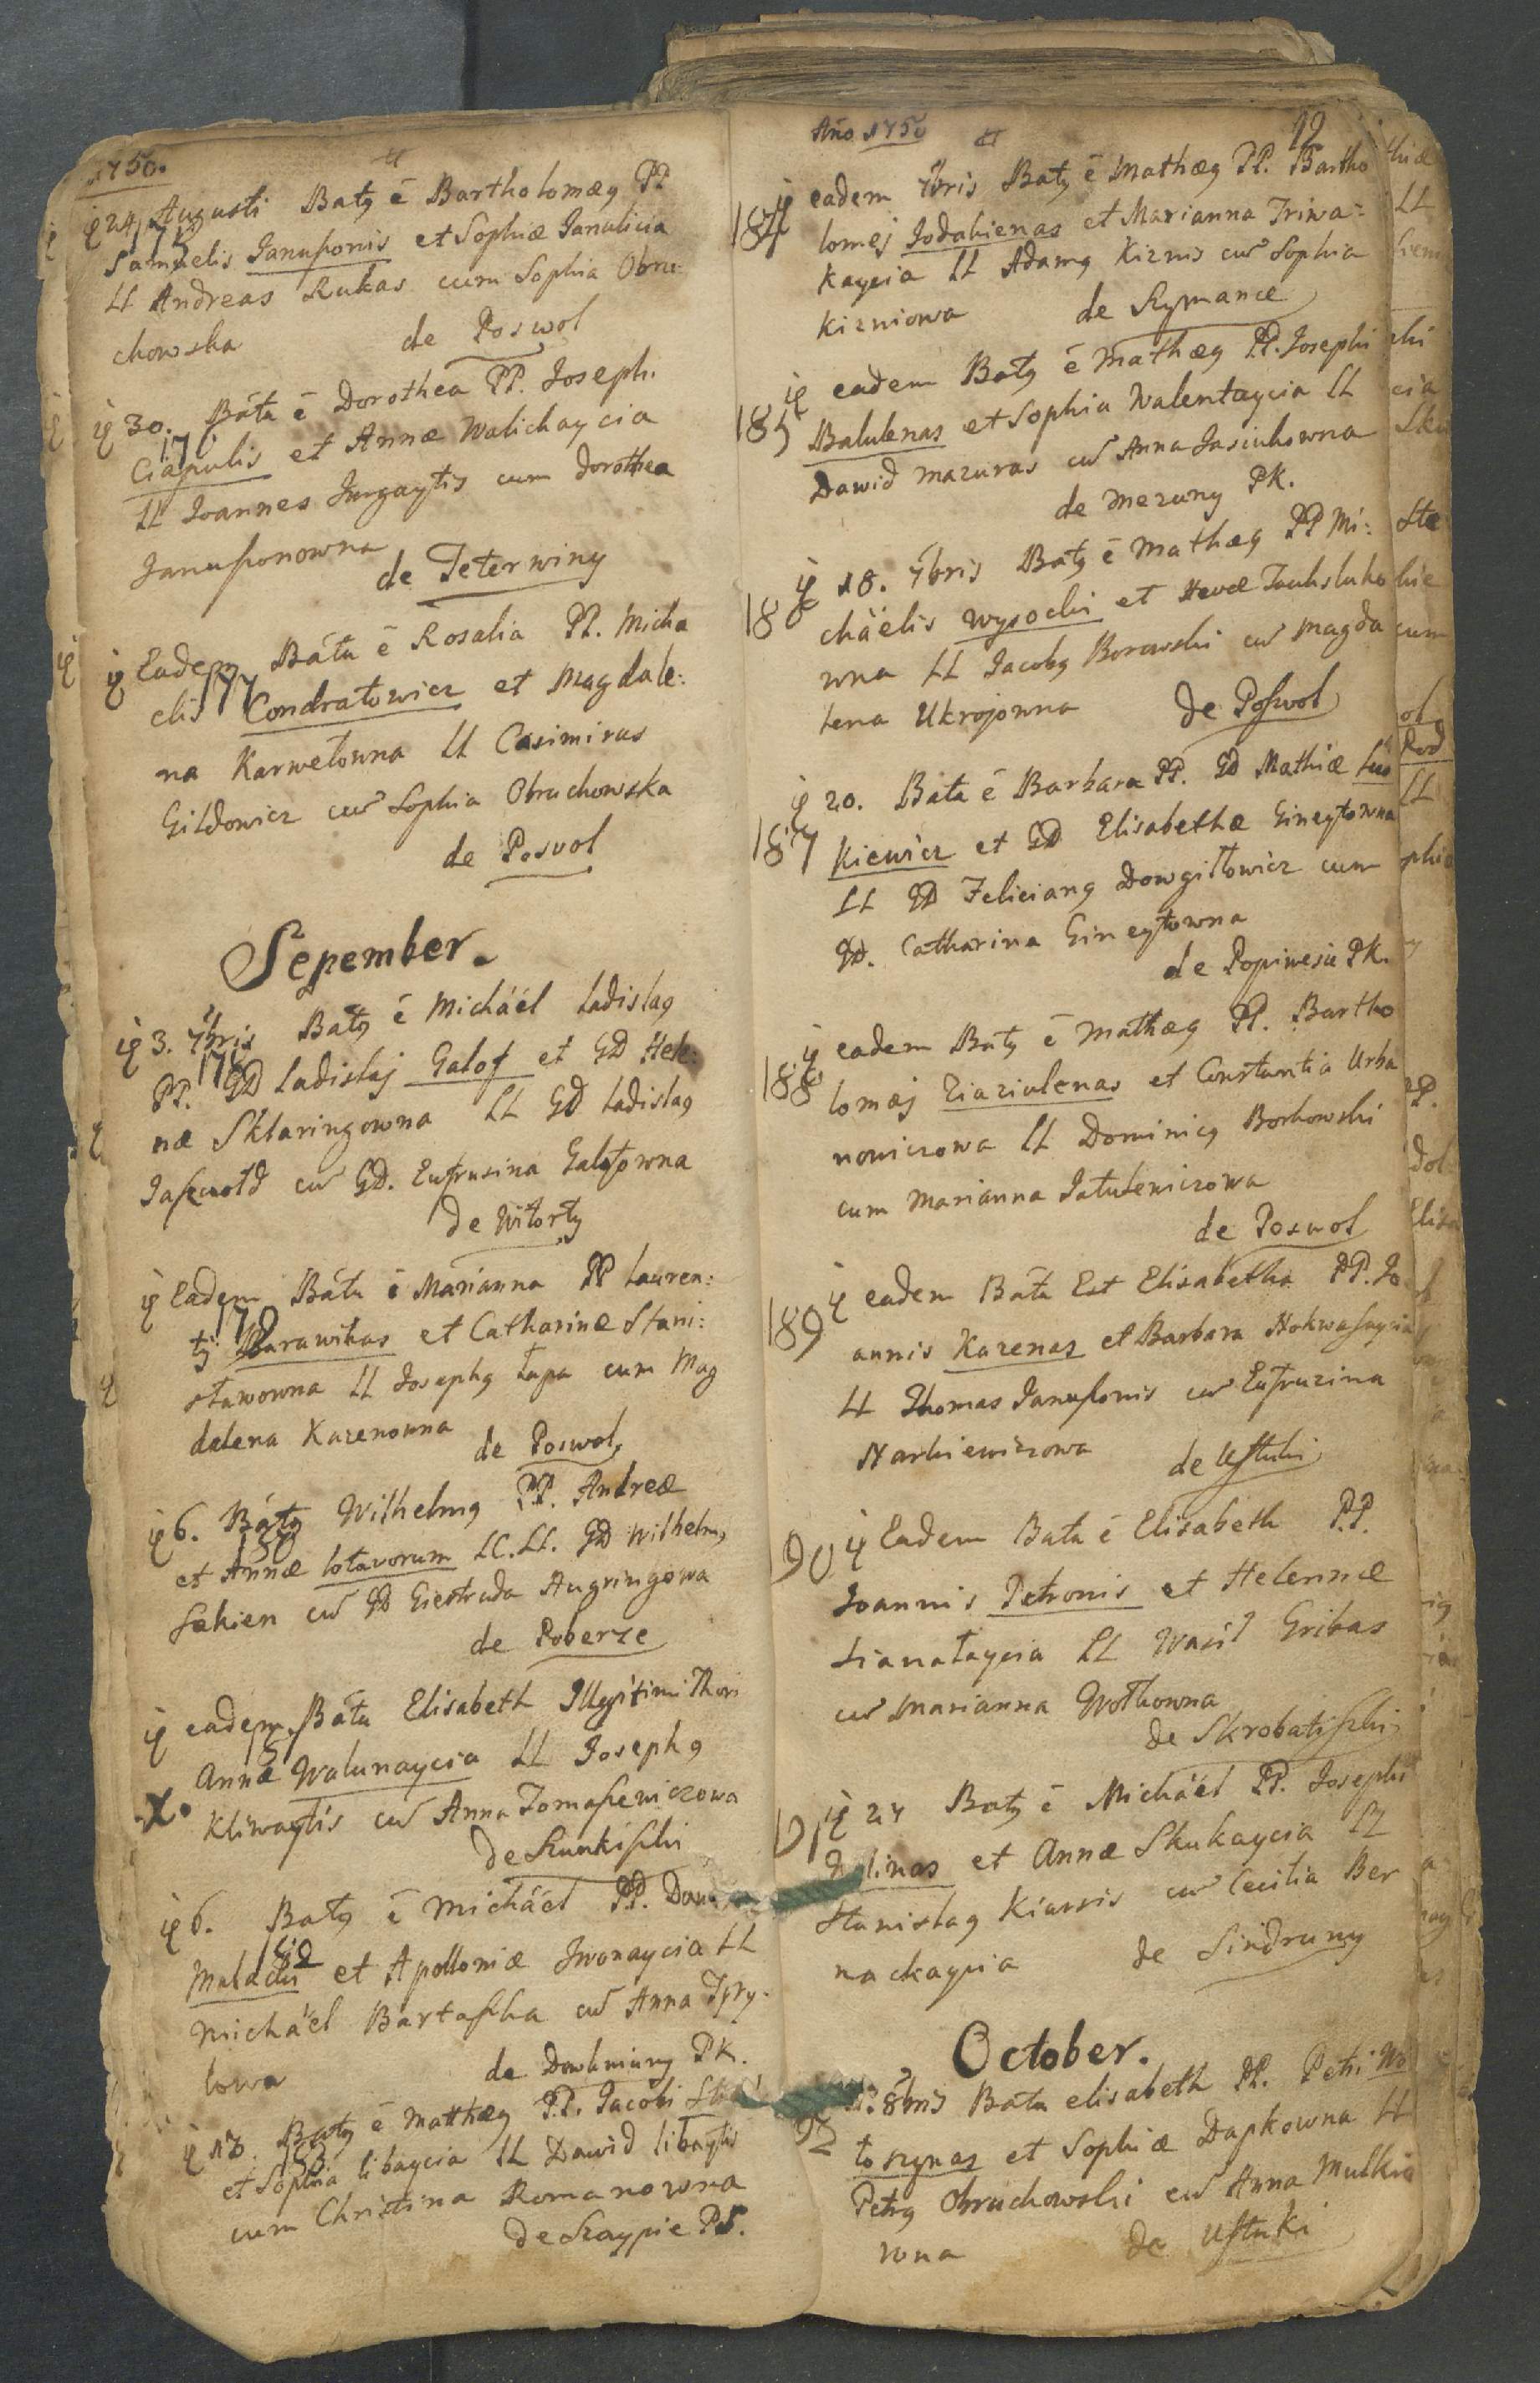 1750.
24 Augusti Baty ē Bartholomæy PP
175
Samuelis Januszonis et Sophiæ Janulicia
LL Andreas Rukas cum Sophia Obru-
chowska de Poswol
30. Bata ē Dorothea PP. Joseph.
176
Ciapulis et Annæ Walichaycia
LL Joannes Jurgaytis cum Dorothea
Januszonowna
de Peterwiny
Eadem Bata ē Rosalia PP. Micha
177
elis Condratowicz et Magdale:
na Karwetowna LL Casimirus
Gildowicz cu Sophia Obruchowska
de Posvol
Sepember.
3. 7bris Baty ē Michaël Ladislay
178
PP. GD Ladislaj Galof et GD Hele:
næ Sklaringowna LL GD Ladislay
cu GD. Eufrusina Galofowna
de Witorty
Eadem Bata ē Marianna PP Lauren:
179
tij Marawikas et Catharinæ Stani:
stawowna LL Josephy Łapa cum Mag
dalena Kazenowna
de Poswol
6. Baty Wilhelmy PP. Andreæ
180
et Annæ Lotavorum LC. LL. GD Wilhelm,
Sakien cu GD Giestruda Augringowa
de Poberze
eadem Bata Elisabeth Illegitimi Thori
181
Annæ Walunaycia LL Josephy
X. Kliwaytis cu Anna Tomaszewiczowa
de Szunkiszki
6. Baty ē Michaël PP.
182
Malacki et Apolloniæ Jwonaycia LL
Michaël Bartaszka cu Anna Tyry-
lowa de Dowkniuny PK.
13. Baty ē Matthæy PP. Jacobi
183
et Sophia Libaycia LL Dawid Libaytis
cum Christina Romanowna
de Szaypie PS.
Ano 1750
12
eadem 7bris Baty ē Mathæy PP. Bartho
184
lomej Jodakienas et Marianna Triwa:
kaycia LL Adamy Kiznis cu Sophia
Kizniowa de Rymance
eadem Baty ē Mathæy PP. Josephi
185
Balulenas et Sophia Walentaycia LL
Dawid Mazuras cu Anna Jasiukowna
de Mezuny PK.
18. 7bris Baty ē Mathæy PP Mi:
186
chäelis Wysocki et Hevæ Jaukszluko
wna LL Jacoby Borowski cu Magda
lena Ukrojowna de Poswol
20. Bata ē Barbara PP. GD Mathiæ
187
kiewicz et GD Elisabethæ Gineytowna
LL GD Feliciany Dowgiłowicz cum
GD. Catharina Gineytowna
de Popiwesie PK.
eadem Baty ē Mathæy PP. Bartho
188
lomæj Ziaziulenas et Constantia Urba
nowiczowa LL Dominicy Borkowski
cum Marianna Jatulewiczowa
de Poswol
eadem Bata Est Elisabetha PP. Jo
189
annis Kazenas et Barbara Nokwaszaycia
LL Thomas Januszonis cu Eufruzina
Narkiewiczowa de Usztuki
90 Eadem Bata ē Elisabeth PP.
Joannis Petronis et Helennæ
Sianataycia LL Wasil Gribas
cu Marianna Wotkowna
de Skrobatiszki
24 Baty ē Michaël PP. Josephi
91
et Annæ Skukaycia LL
Stanislay Kiausis cu Cecilia Ber
nackaycia de Sindruny
October.
8bris Bata elisabeth PP. Petri Wo
92
toszynas et Sophiæ Dapkowna LL
Petry Obruchowski cu Anna Mulkie
wna de Usztuki